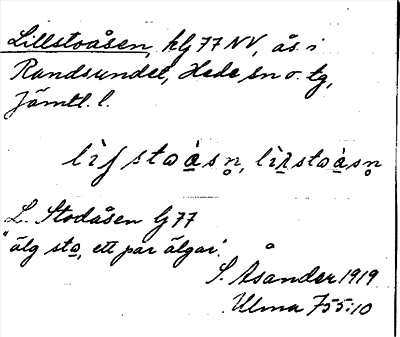 Lillstoåsen, kG 77 NV, ås i
Randsundet, Hede sn o. tg,
Jämtl. l.
lìʃstoá̱sn̥, lìɹ̱stoá̱sn̥
L. Stodåsen G 77
"älg sto, ett par älgar".
S. Åsander 1919
Ulma 755:10